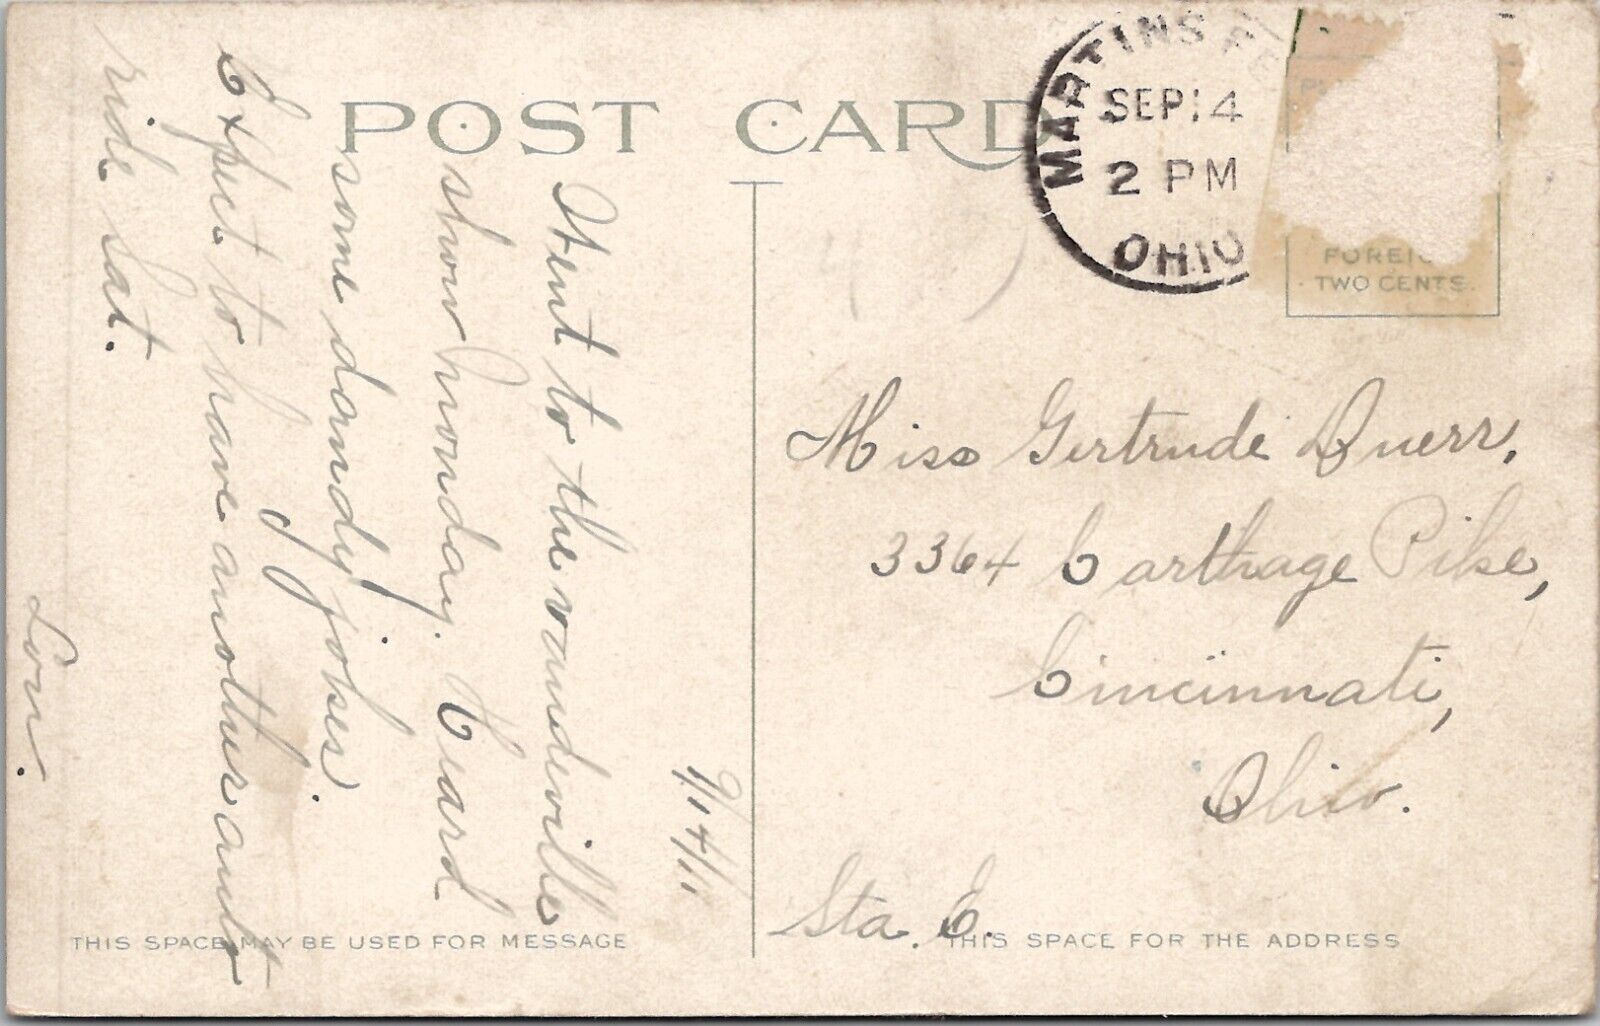 POST CARD
MARTINS FE
SEP 14
2 PM
OHIO
FOREIG
TWO CENTS.
9/14/11
Went to the vaudeville
show monday. Heard
some dandy jokes.
Expect to have another auto
ride Sat.
THIS SPACE MAY BE USED FOR MESSAGE
Miss Gertrude Duerr,
3364 Carthage Pike,
Cincinnati,
Ohio.
Sta. C.
THIS SPACE FOR THE ADDRESS